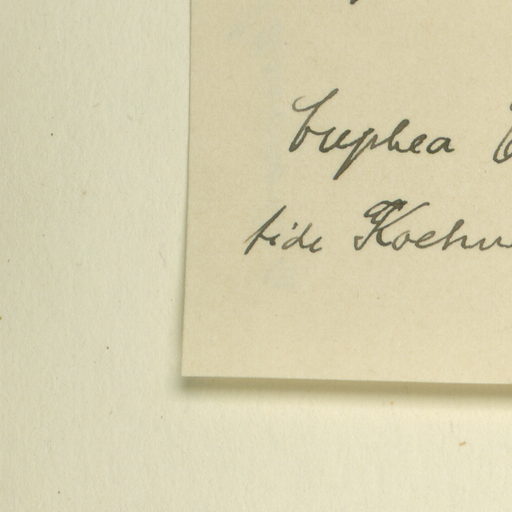 Cuphea
fide Koehn